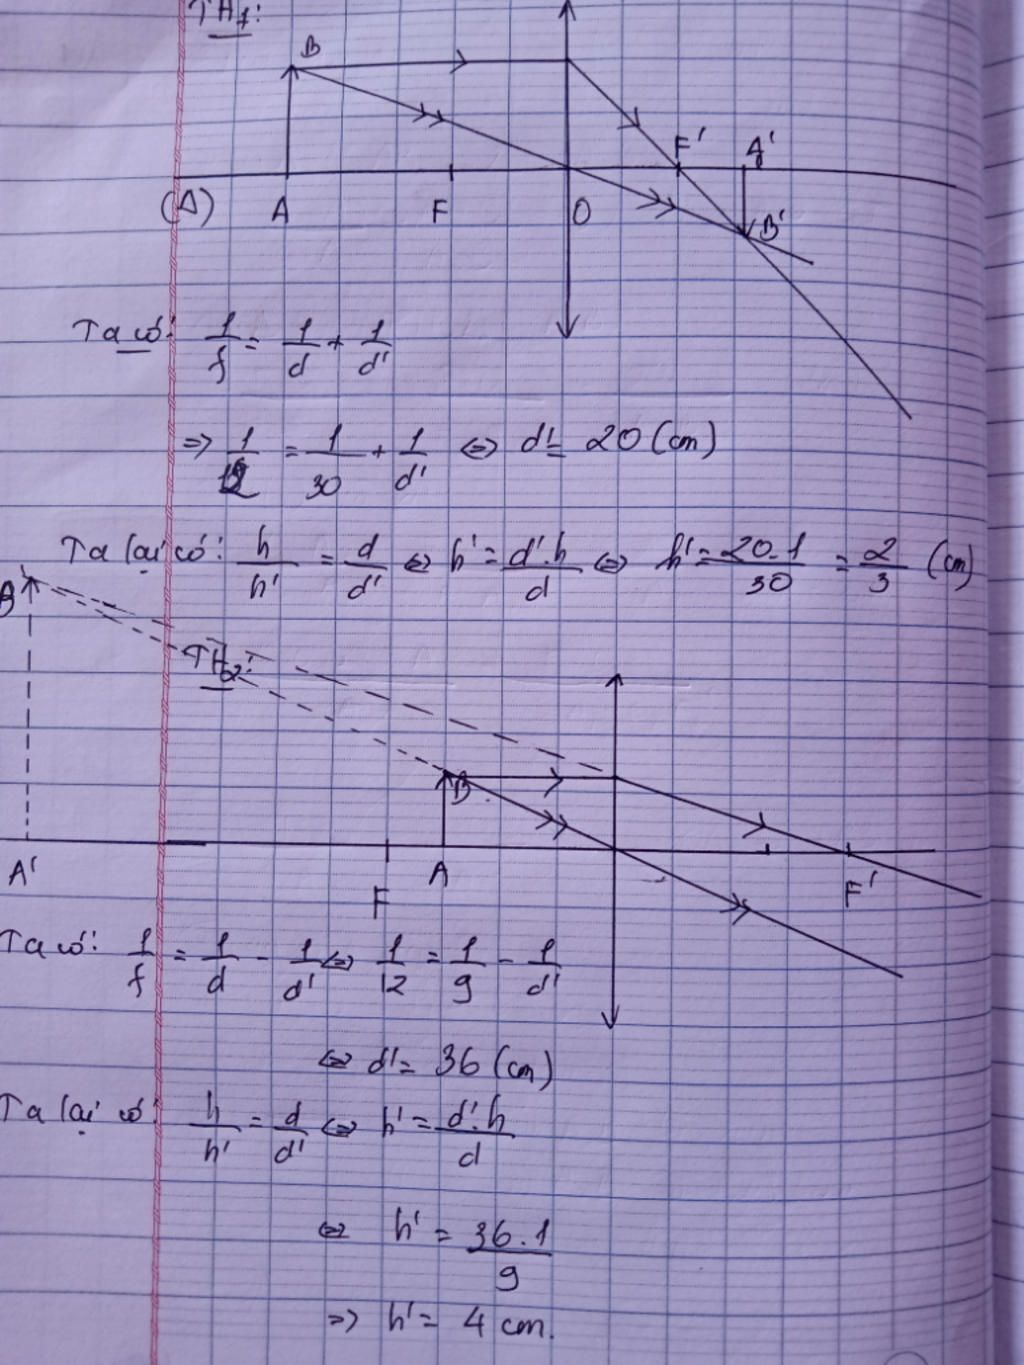 TH1:
B
F' A'
(Δ) A F O B'
Ta có: 1/f = 1/d + 1/d'
=> 1/12 = 1/30 + 1/d' <=> d' = 20 (cm)
Ta lại có: h/h' = d/d' <=> h' = d'.h/d <=> h' = 20.1/30 = 2/3 (cm)
B'
TH2:
B
A' F A F'
Ta có: 1/f = 1/d - 1/d' <=> 1/12 = 1/9 - 1/d'
<=> d' = 36 (cm)
Ta lại có: h/h' = d/d' <=> h' = d'.h/d
<=> h' = 36.1/9
=> h' = 4 cm.